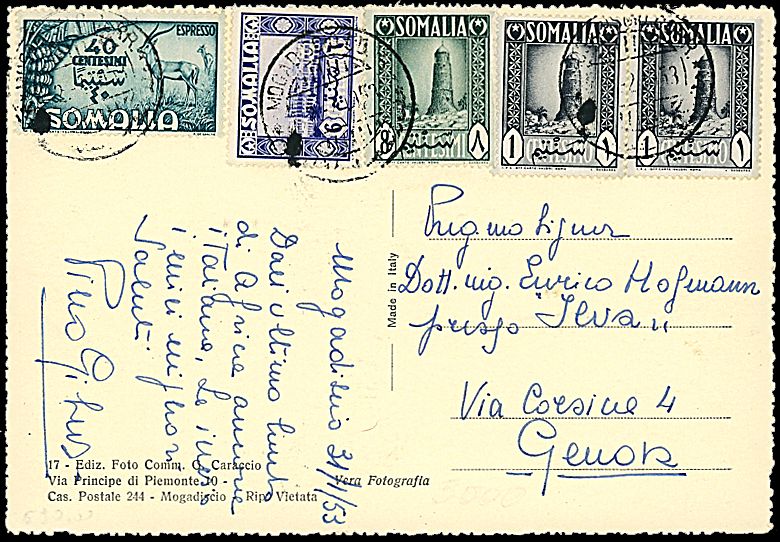 ESPRESSO
40
CENTESIMI
SOMALIA
SOMALIA
SOMALIA
8 CENTESIMI ٨
SOMALIA
1 CENTESIMO ١
SOMALIA
1 CENTESIMO ١
Mogadiscio 31/1/53
Dall'ultimo lembo
di Africa ancora
italiana, Le invio
i miei migliori
saluti
Made in Italy
Preg.mo Signor
Dott. ing. Enrico Hofmann
presso "Ilva"
Via Corsica 4
Genova
17 - Ediz. Foto Comm. C. Caraccio
Via Principe di Piemonte 10 -
Cas. Postale 244 - Mogadiscio - Rip. Vietata
Vera Fotografia